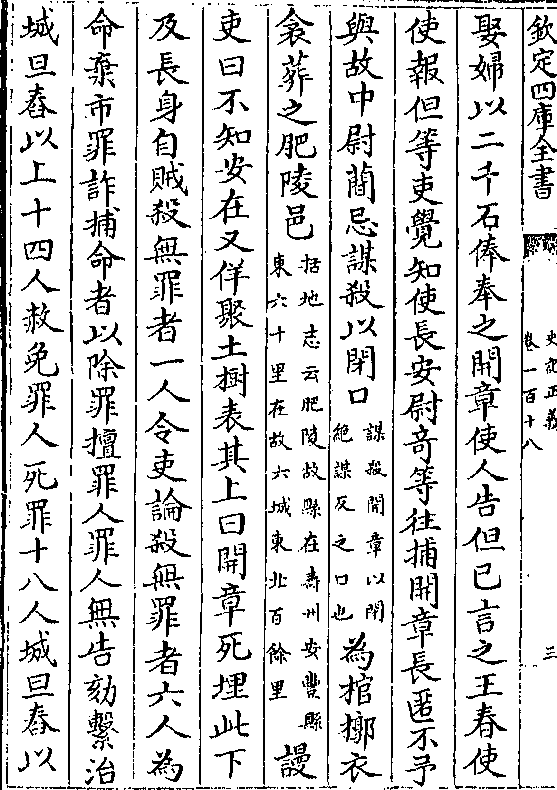 欽定四庫全書
史記正義
卷一百十八
三
娶婦以二千石俸奉之開章使人告但已言之王春使
使報但等吏覺知使長安尉奇等往捕開章長匿不予
與故中尉蕳忌謀殺以閉口謀殺開章以閉絶謀反之口也為棺槨衣
衾葬之肥陵邑括地志云肥陵故縣在壽州安豐縣東六十里在故六城東北百餘里謾
吏曰不知安在又佯聚土樹表其上曰開章死埋此下
及長身自賊殺無罪者一人令吏論殺無罪者六人為
命棄市罪詐捕命者以除罪擅罪人罪人無告劾繫治
城旦舂以上十四人赦免罪人死罪十八人城旦舂以